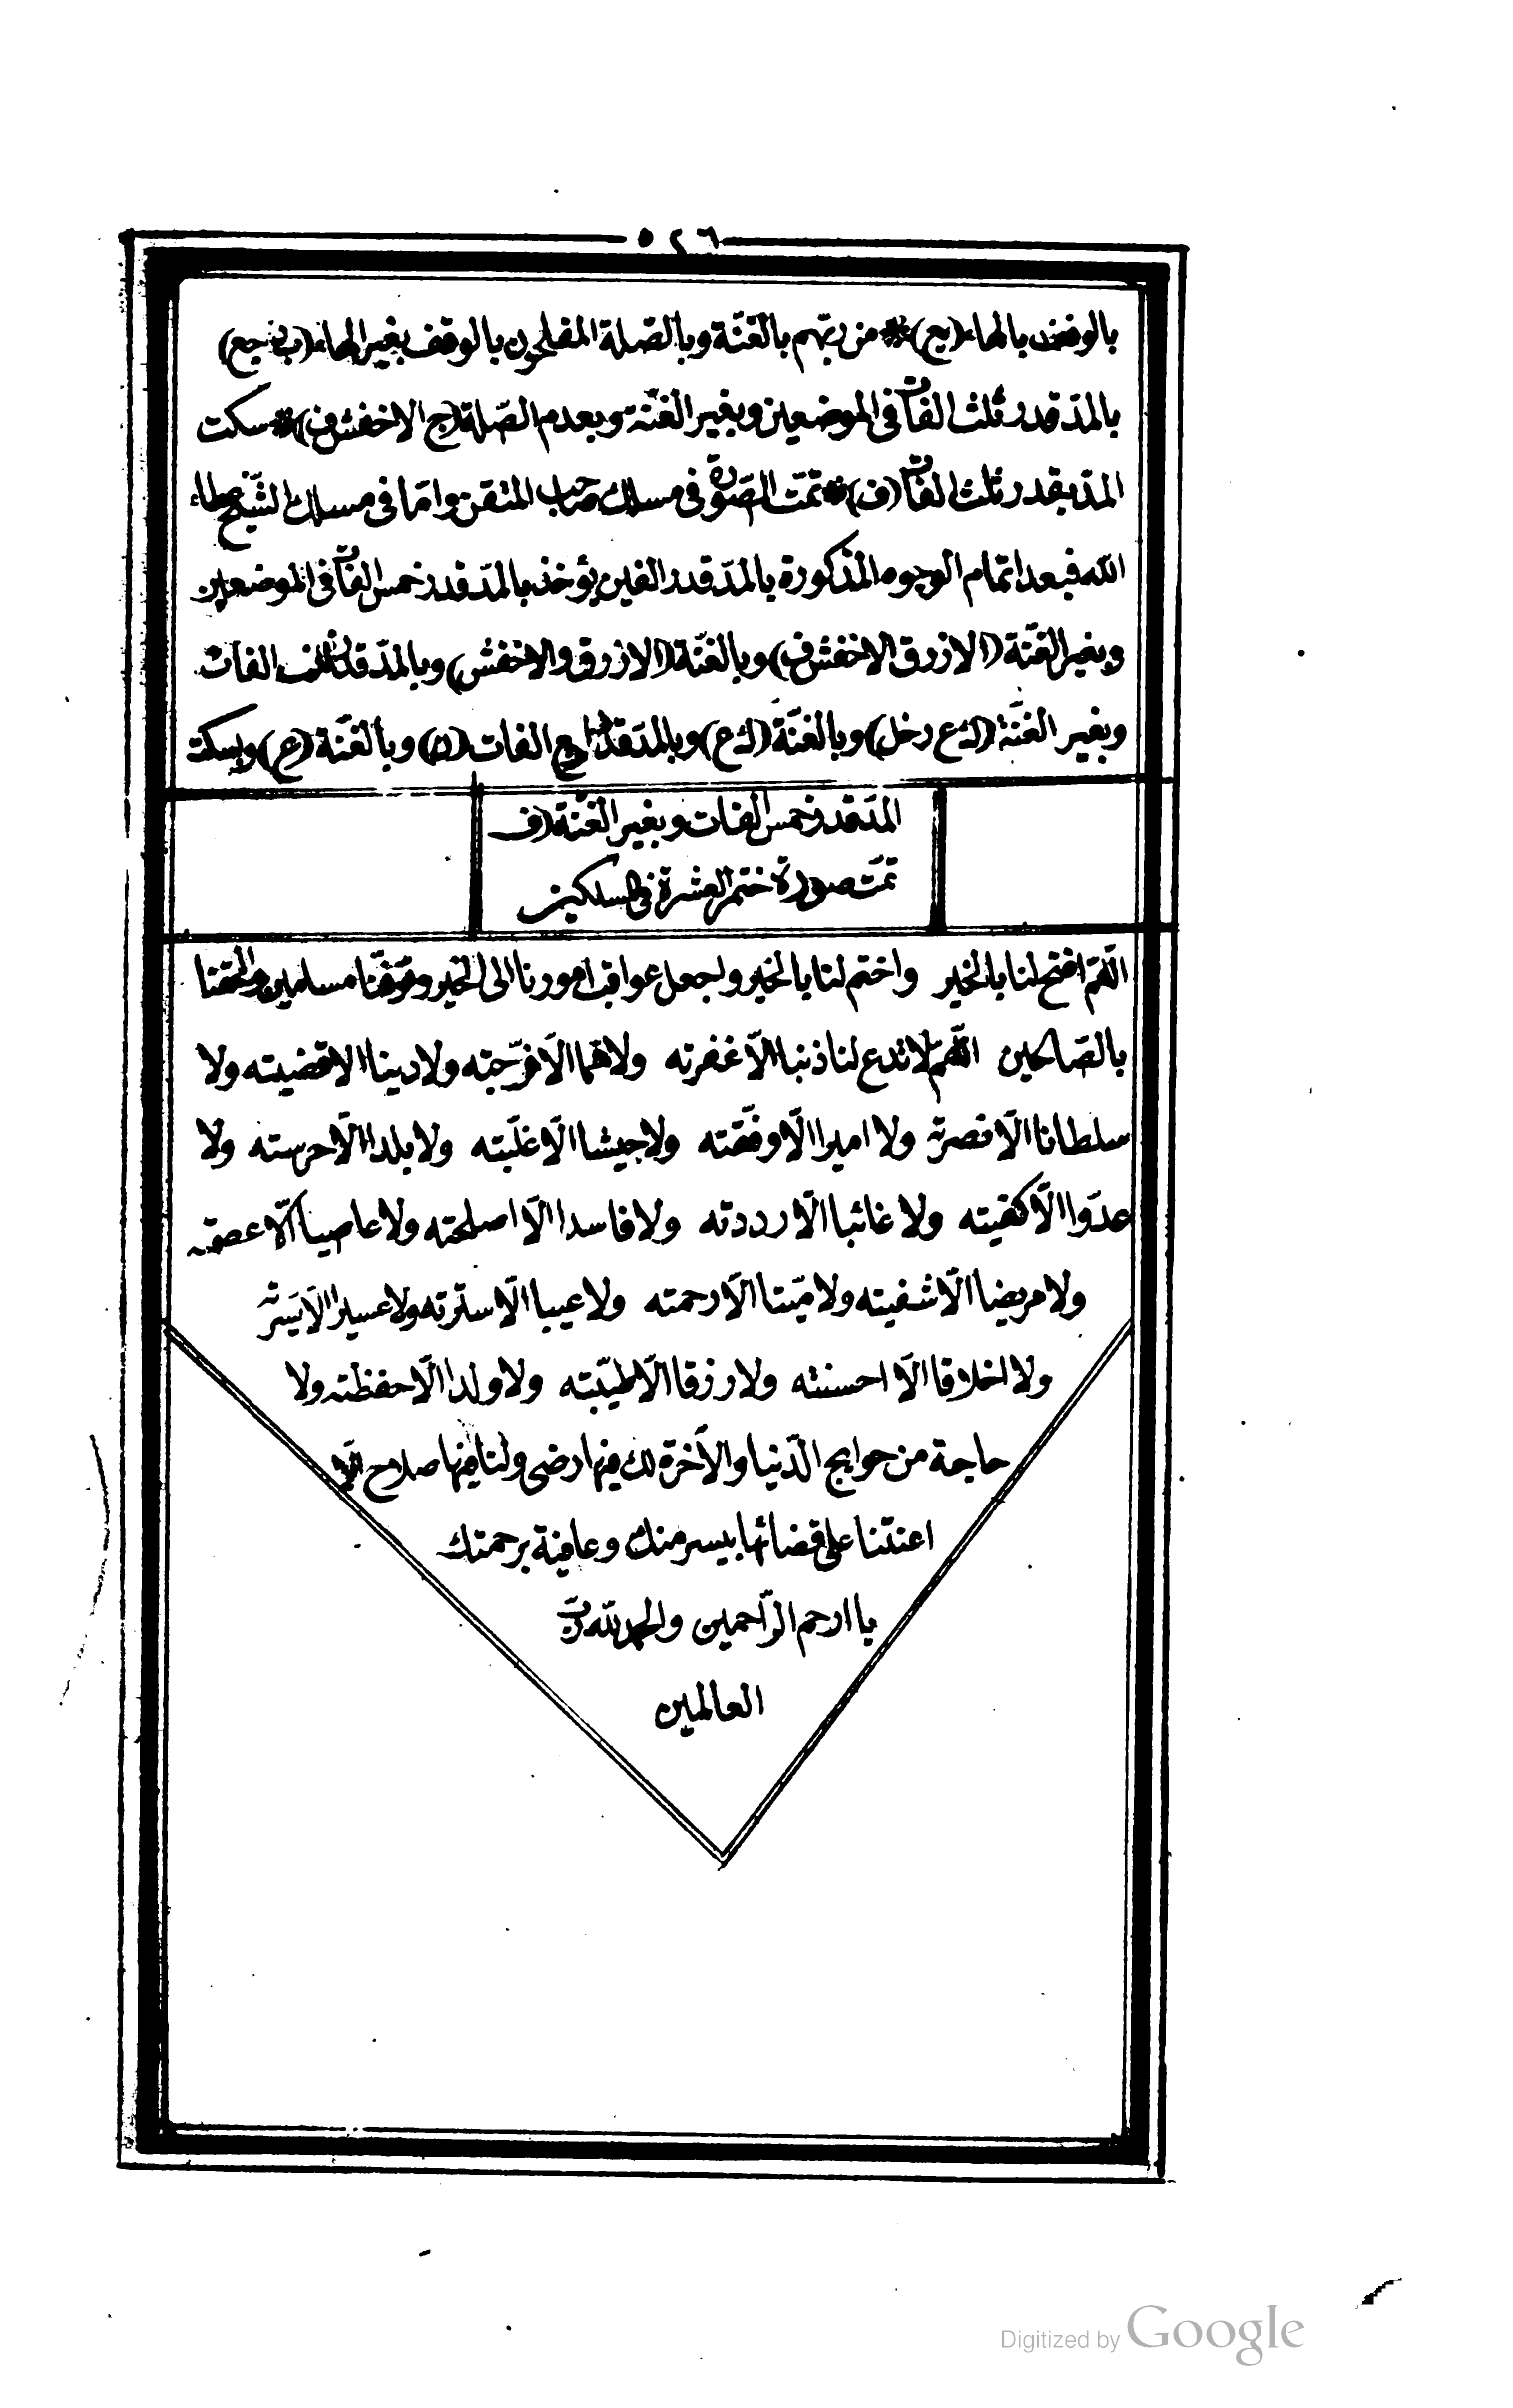 ٥٢٦
بالوقف بالهاء (يع) * من ربهم بالغنّة وبالصّلة المفلحون بالوقف بغير الهاء (ب جع)
بالمدّ قدر ثلث الفات فى الموضعين وبغير الغنّة وبعدم الصّلة (ج الاخفش ف) * سكت
المدّ بقدر ثلث الفات (ف) * تمّت الصّورة فى مسلك صاحب المتقن وامّا فى مسلك الشّيخ عطاء
الله فبعد اتمام الوجوه المذكورة بالمدّ قدر الفين يؤخذ بالمدّ قدر خمس الفات فى الموضعين
وبغير الغنّة (الازرق الاخفش ف) وبالغنّة (الازرق والاخفش) وبالمدّ قدر ثلث الفات
وبغير الغنّة (ك ع ر خل) وبالغنّة (ك ع) وبالمدّ قدر اربع الفات (ن) وبالغنّة (ع) وبسكت
المدّ قدر خمس الفات وبغير الغنّة (ف
تمّت صورة ختم العشرة فى المسلكين
اللّهمّ افتح لنا بالخير واختم لنا بالخير واجعل عواقب امورنا الى الخير وتوفّنا مسلمين والحقنا
بالصّالحين اللّهمّ لا تدع لنا ذنبا الّا غفرته ولا همّا الّا فرّجته ولا دينا الا قضيته ولا
سلطانا الّا نصرته ولا اميرا الّا وفّقته ولا جيشا الّا غلّبته ولا بلدا الّا حرسته ولا
عدوّا الّا كفيته ولا غائبا الّا رددته ولا فاسدا الّا اصلحته ولا عاصيا الّا عصمته
ولا مريضا الّا شفيته ولا ميّتا الّا رحمته ولا عيبا الّا سترته ولا عسيرا الّا يسّرته
ولا اخلاقا الّا احسنته ولا رزقا الّا طيّبته ولا ولدا الّا حفظته ولا
حاجة من حوايج الدّنيا والآخرة لك فيها رضى ولنا فيها صلاح الّا
اعنتنا على قضائها بيسر منك وعافية برحمتك
يا ارحم الرّاحمين والحمد لله ربّ
العالمين
Digitized by Google